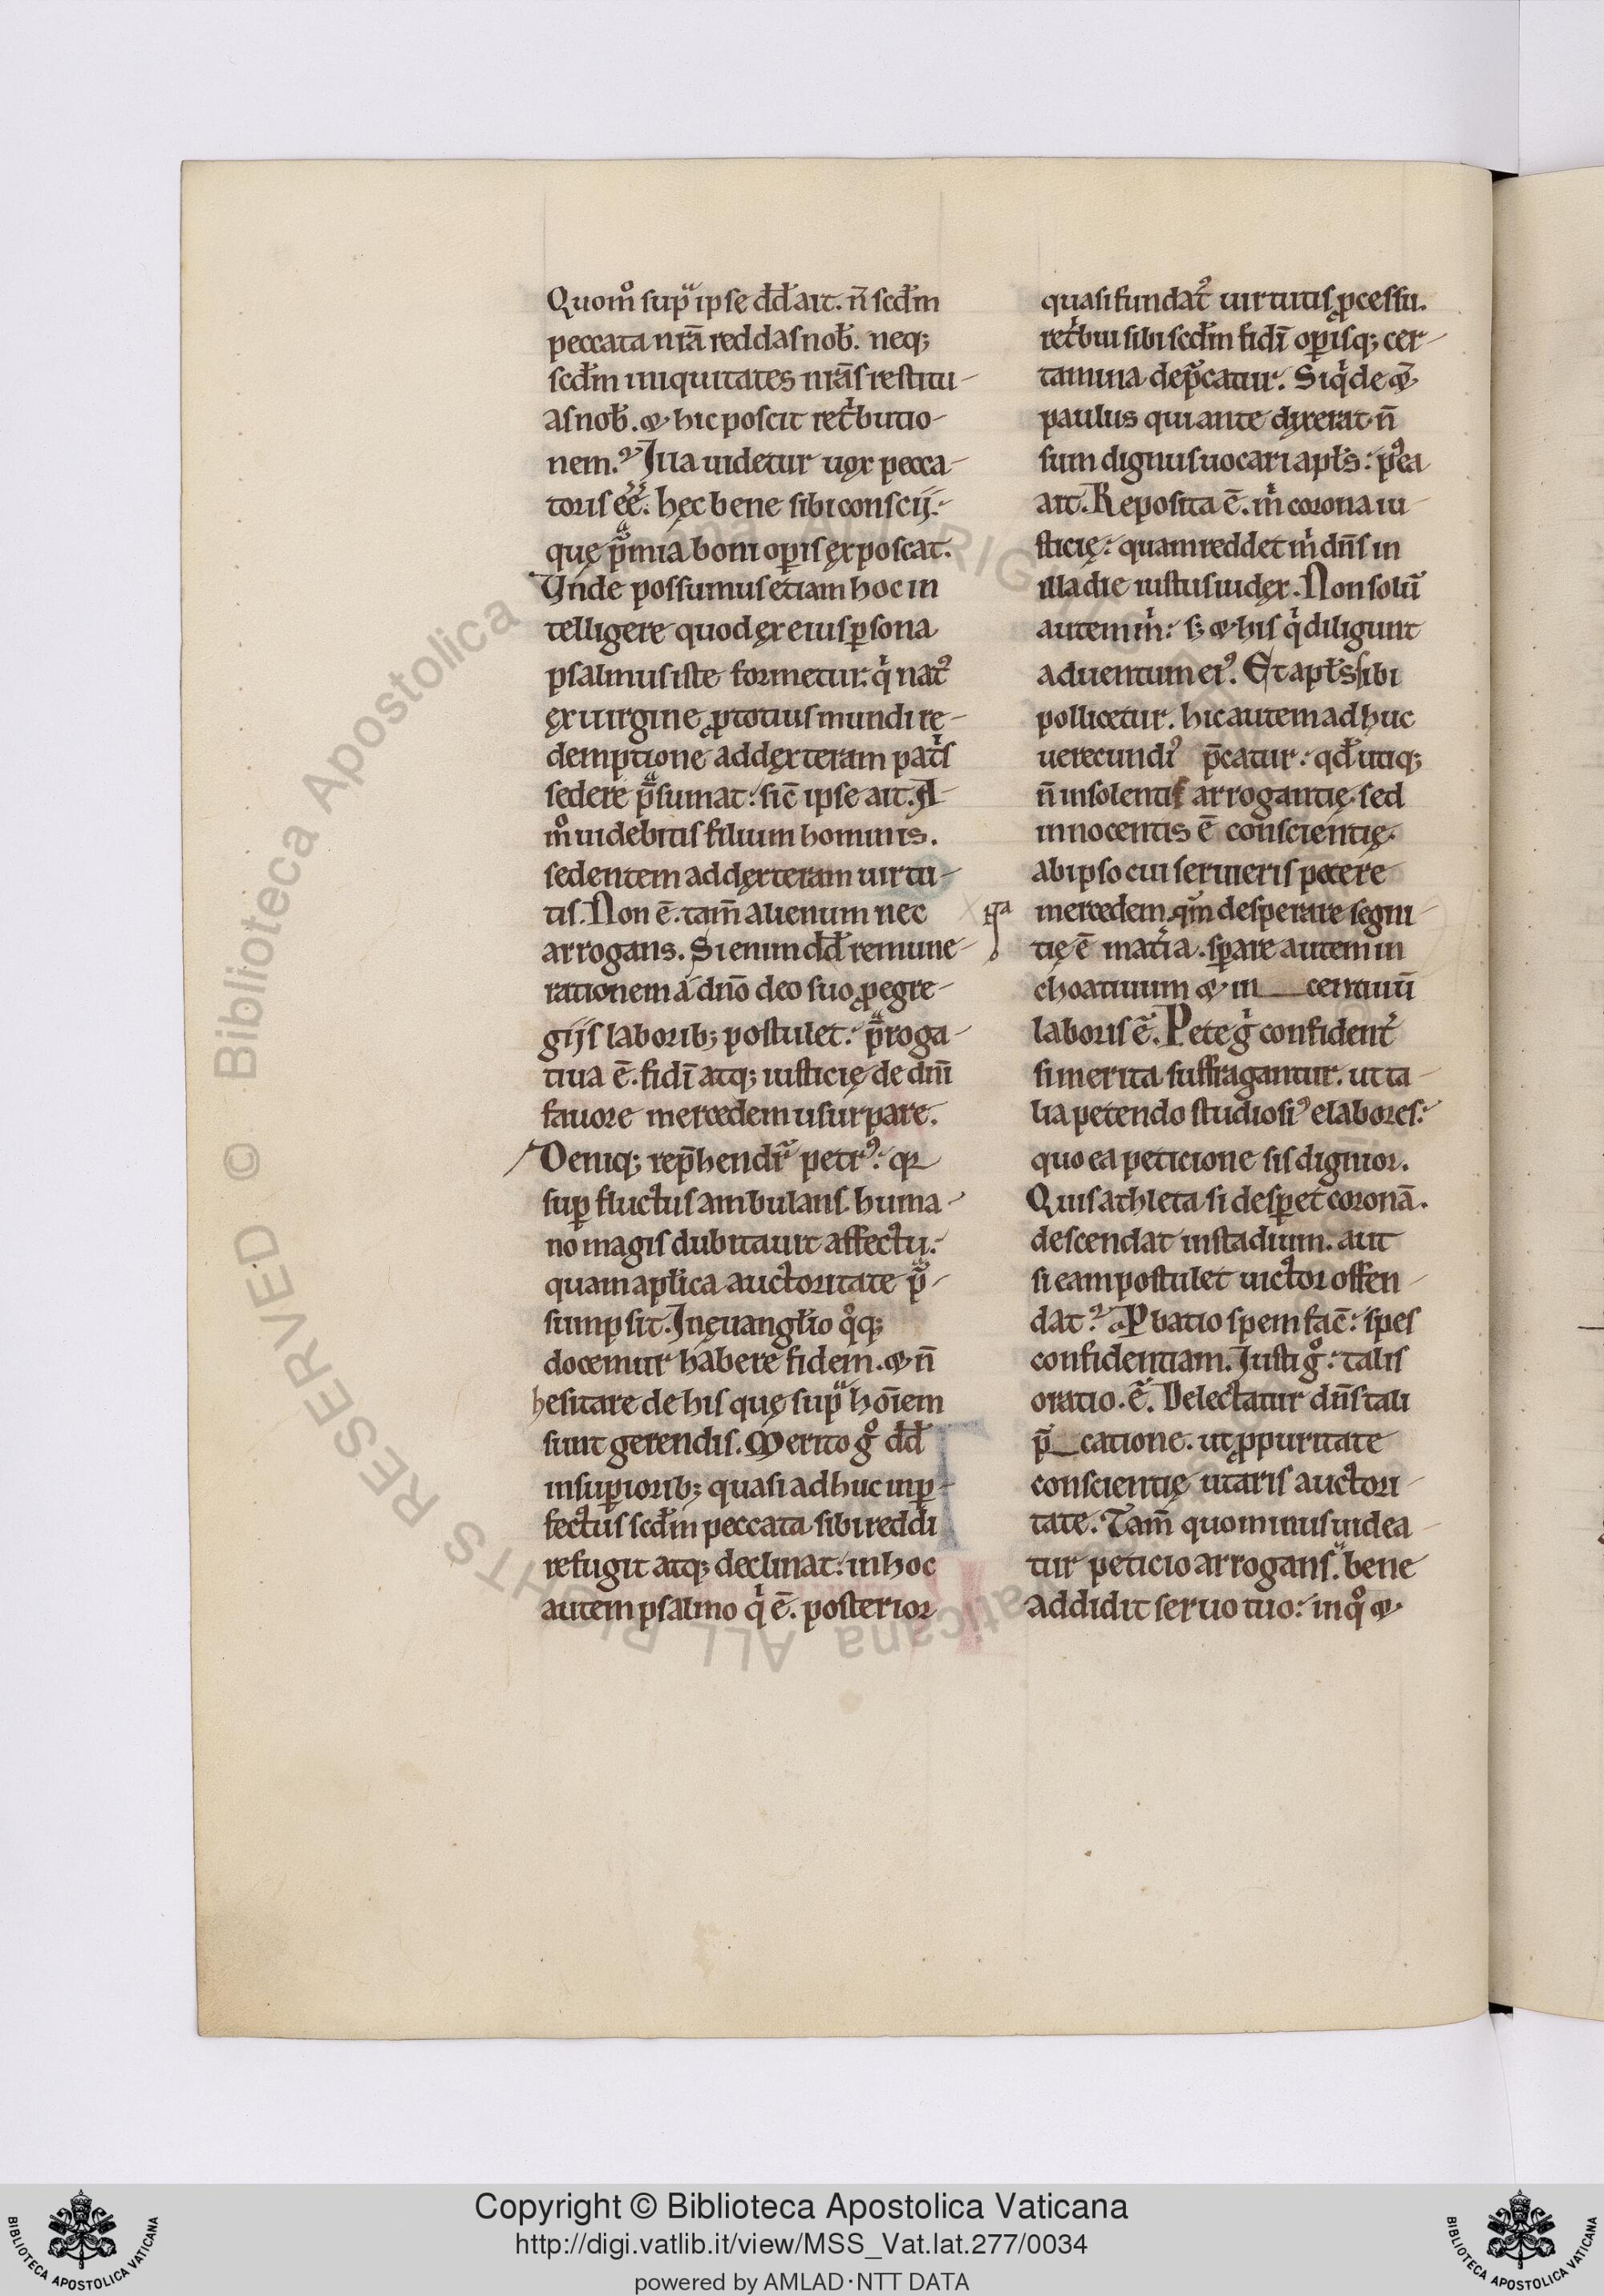 Quom̊ supᷓ ipse dd̄ ait. n̄ scdm̄
peccata nr̄a reddas nob̄. neq;
scdm̄ iniquitates nr̄as restitu-
as nob̄. & hic poscit retͥbutio-
nem.ˀ Jlla uidetur uox pecca-
toris eēˀ. hęc bene sibi conscij:-
quę p̄mia boni op̲is exposcat.
Vnde possumus etiam hoc in
telligere quod ex eius p̲sona
psalmus iste formetur: qͥ natꝰ
ex uirgine ꝓ totius mundi re-
demptione ad dexteram patͥs
sedere p̄sumat: sic̄ ipse ait. A-
m̊ uidebitis filium hominis.
sedentem ad dexteram uirtu-
tis. Non ē. tam̄ alienum nec
arrogans. Si enim dd̄ remune-
rationem a dn̄o deo suo ꝓ egre-
gijs laborib; postulet: p̄roga-
tiua ē. fidī atq; iusticię de dnī
fauore mercedem usurpare.
Deniq; rep̄hendrͣ petrꝰ: qꝛ
sup̲ fluctus ambulans. huma-
no magis dubitauit affectu:
quam aplīca auctoritate p̄-
sumpsit. Jn euanglīo qͦq;
docemur habere fidem. & n̄
hesitare de his quę supᷓ hoīem
sunt gerendis. Merito gͦ dd̄
in sup̲iorib; quasi adhuc inp̲-
fectus scdm̄ peccata sibi reddi
refugit atq; declinat: in hoc
autem psalmo qͥ ē. posterior
quasi fundatꝰ uirtutis ꝓcessu.
retͥbui sibi scdm̄ fidī op̲isq; cer-
tamina dep̄catur. Siqͥde &
paulus qui ante dixerat n̄
sum dignus uocari apl̄s: pꝰea
ait. Reposita ē. mͥ corona iu-
sticię: quam reddet mͥ dn̄s in
illa die iustus iudex. Non solū
autem mͥ: s; & his qͥ diligunt
aduentum eiꝰ. Et apl̄s sibi
pollicetur. hic autem adhuc
uerecundiꝰ p̄catur: qd̄ utiq;
n̄ insolentis arrogantię. sed
innocentis ē conscientię.
ab ipso cui seruieris petere
mercedem. qm̄ desperare segni-
Hᵃ
tię ē matͥa. sp̲are autem in
choatiuum & in__centiuū
laboris ē. Pete gͥ confident̄
si merita suffragantur. ut ta-
lia petendo studiosiꝰ elabores:
quo ea peticione sis dignior.
Quis athleta si desp̲et coronā.
descendat in stadium. aut
si eam postulet uictor offen-
dat?ˀ P batio spem fac̄: spes
confidentiam. Justi gͦ: talis
oratio. ē. Delectatur dn̄s tali
p̄__catione. ut ꝓ puritate
conscientię utaris auctori-
tate. Tam̄ quominus uidea-
tur peticio arrogans. bene
addidit seruo tuo: in qͦ &
© Biblioteca Apostolica Vaticana ALL RIGHTS RESERVED
Copyright © Biblioteca Apostolica Vaticana
http://digi.vatlib.it/view/MSS_Vat.lat.277/0034
powered by AMLAD·NTT DATA
BIBLIOTECA APOSTOLICA VATICANA
BIBLIOTECA APOSTOLICA VATICANA